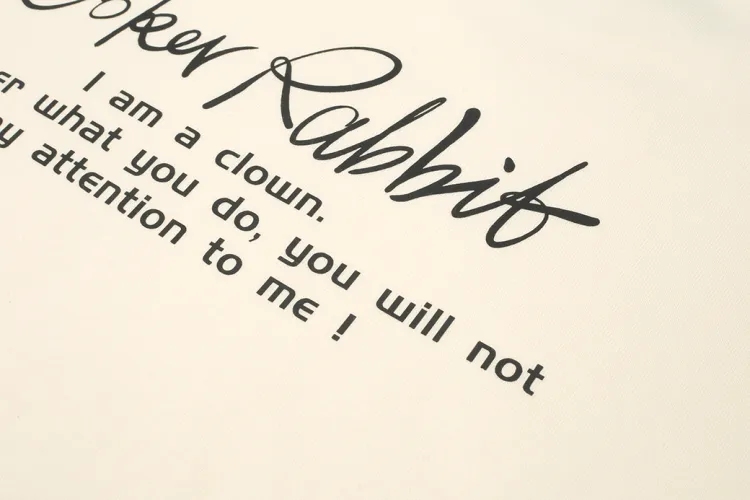 Rabbit
I am a clown.
what you do, you will not
attention to me !